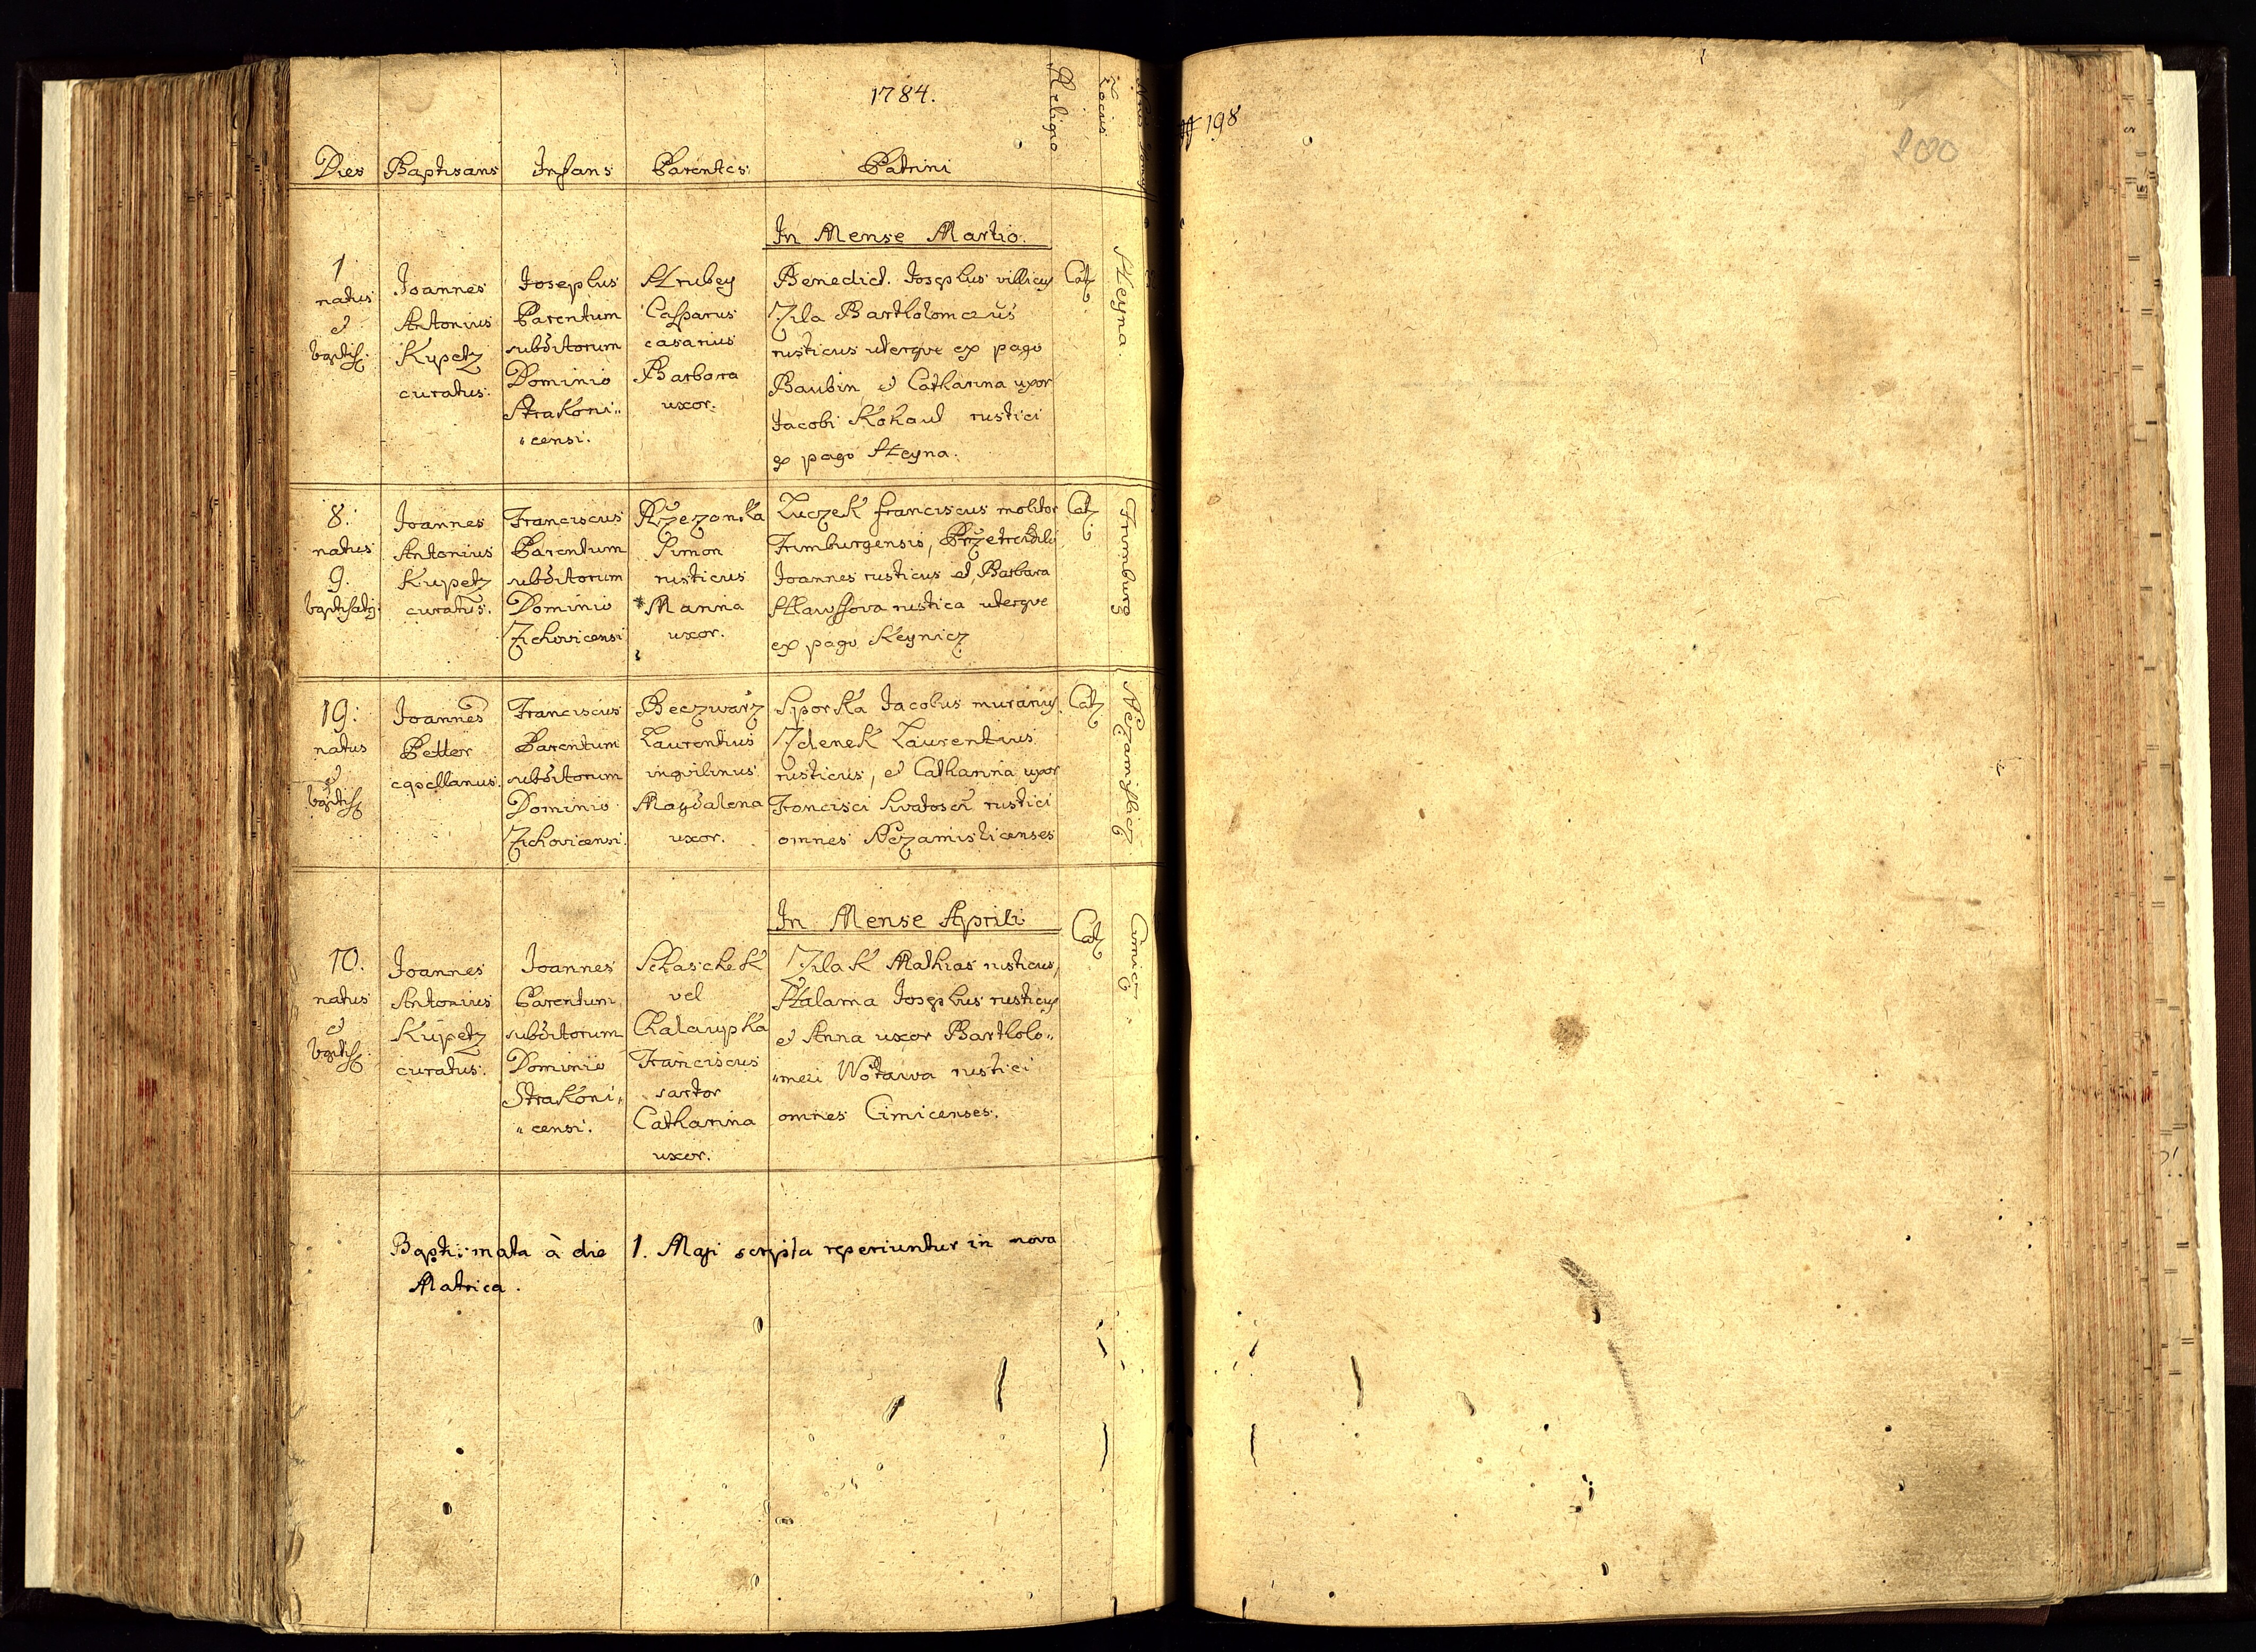 1784.
Religio
Locus
Dies Baptisans Infans Parentes Patrini
In Mense Martio.
1
natus
et
baptis.
Joannes
Antonius
Kupetz
curatus.
Josephus
Parentum
subditorum
Dominio
Strakoni„
„censi.
Hrubey
Casparus
casarius
Barbara
uxor.
Benedict. Josephus villicus
Zila Bartholomaeus
rusticus uterque ex pago
Baubin et Catharina uxor
Jacobi Kohaut rustici
ex pago Heyna.
Cat.
Heyna.
8.
natus
9.
baptisatus
Joannes
Antonius
Kupetz
curatus.
Franciscus
Parentum
subditorum
Dominio
Zichovicensi
Rzezanka
Simon
rusticus
Marina
uxor.
Luczek franciscus molitor
Frimburgensis,
Joannes rusticus et Barbara
rustica uterque
ex pago Keynicz
Cat.
Frimburg
19.
natus
et
baptis.
Joannes
Petter
capellanus.
Franciscus
Parentum
subditorum
Dominio
Zichovicensi.
Beczwarz
Laurentius
inquilinus
Magdalena
uxor.
Sporka Jacobus murarius.
Zdenek Laurentius
rusticus, et Catharina uxor
Francisci Swatosch rustici
omnes Nezamislicenses
Cat.
Nezamislicz
In Mense Aprili
10.
natus
et
baptis.
Joannes
Antonius
Kupetz
curatus.
Joannes
Parentum
subditorum
Dominio
Strakoni„
„censi.
Schaschek
vel
Chalaupka
Franciscus
sartor
Catharina
uxor.
Zilak Mathias rusticus,
Halama Josephus rusticus
et Anna uxor Bartholo„
„mei Wotawa rustici
omnes Cimicenses.
Cat.
Cimicz.
Baptismata à die 1. Maji scripta reperiuntur in nova
Matrica.
198
200